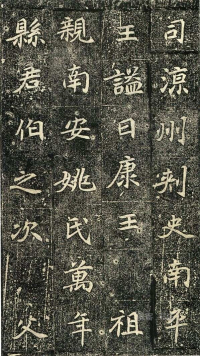 司涼州刾史南平
王謚曰康王 祖
親南安姚氏萬年
縣君伯之次 父